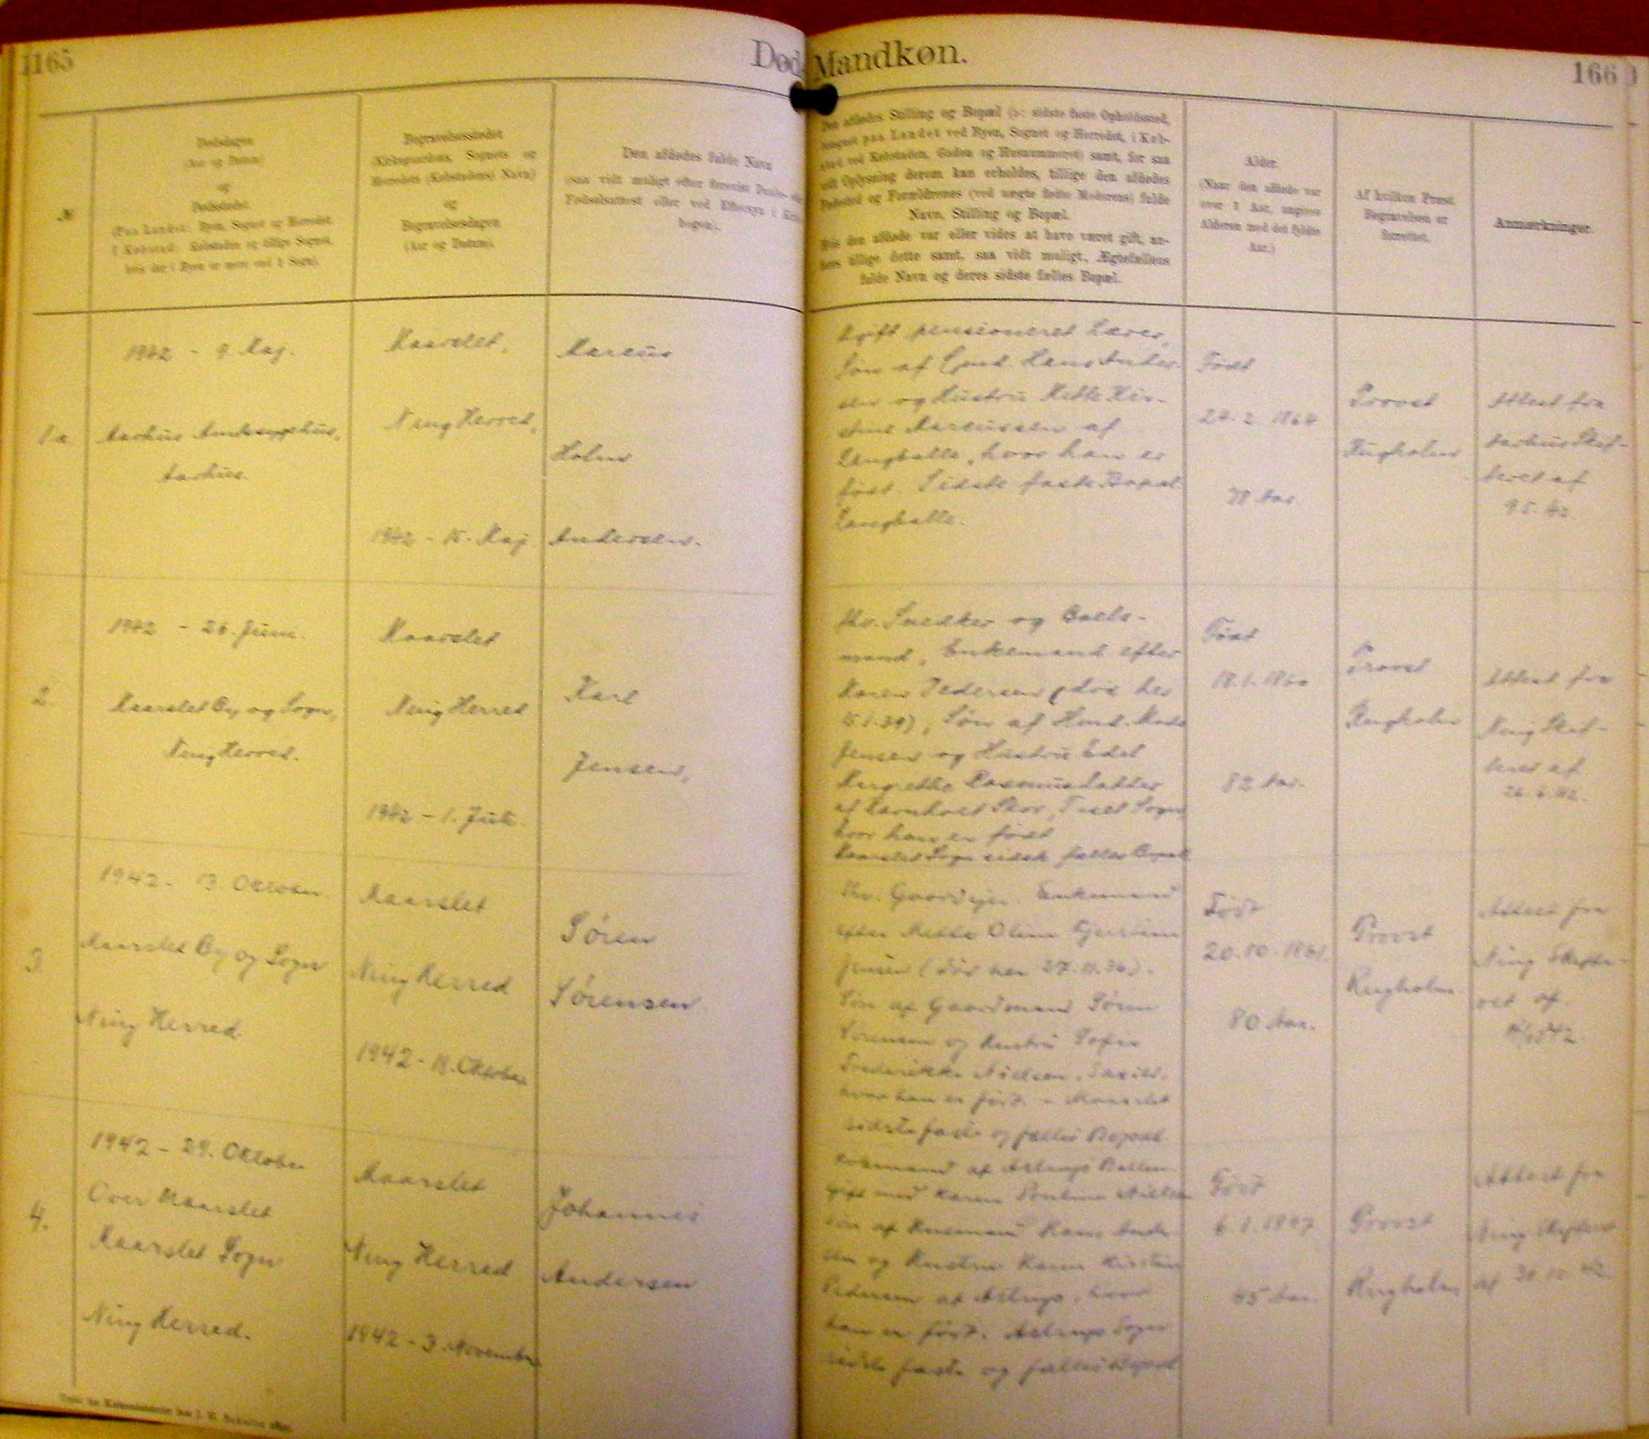 1165
Død
Mandkøn.
166
№
Dødsdagen
(Aar og Datum)
og
Dødsstedet
(Paa Landet: Byen, Sognet og Herredet.
I Købstad: Købstaden og tillige Sognet,
hvis der i Byen er mere end 1 Sogn).
Begravelsesstedet
(Kirkegaardens, Sognets og
Herredets (Købstadens) Navn)
og
Begravelsesdagen
(Aar og Datum).
Den afdødes fulde Navn
(saa vidt muligt efter forevist Daabs- eller
Fødselsattest eller ved Eftersyn i Kirke-
bogen).
Den afdødes Stilling og Bopæl (ɔ: sidste faste Opholdssted,
betegnet paa Landet ved Byen, Sognet og Herredet, i Køb-
stad ved Købstaden, Gaden og Husnummeret) samt, for saa
vidt Oplysning derom kan erholdes, tillige den afdødes
Fødested og Forældrenes (ved uægte fødte Moderens) fulde
Navn, Stilling og Bopæl.
Hvis den afdøde var eller vides at have været gift, an-
føres tillige dette samt, saa vidt muligt, Ægtefællens
fulde Navn og deres sidste fælles Bopæl.
Alder.
(Naar den afdøde var
over 1 Aar, angives
Alderen med det fyldte
Aar.)
Af hvilken Præst
Begravelsen er
forrettet.
Anmærkninger.
1a
1942 - 9. Maj.
Aarhus Amtssygehus,
Aarhus.
Maarslet,
Ning Herred,
1942 - 15. Maj
Marcus
Holm
Andersen.
Ugift pensioneret Lærer,
Søn af Gmd. Hans Ander-
sen og Hustru Mette Kir-
stine Marcussen af
Langballe, hvor han er
født. Sidste faste Bopæl
Langballe.
Født
24. 2. 1864
78 Aar.
Provst
Rugholm
Attest fra
Aarhus Skif-
teret af
9.5.42.
2.
1942 - 26. Juni.
Maarslet By og Sogn,
Ning Herred.
Maarslet
Ning Herred
1942 - 1. Juli.
Karl
Jensen,
fhv. Snedker og Boels-
mand, Enkemand efter
Maren Pedersen (død her
Søn af Hmd. Mads
Jensen og Hustru Edel
Margrethe Rasmusdatter
af Skov, Tiset Sogn,
hvor han er født
Maarslet Sogn sidste fælles Bopæl
Født
18.1.1860
82 Aar.
Provst
Rugholm
Attest fra
Ning Skif-
teret af
26.6.42.
3.
1942 - 13. Oktober.
Maarslet By og Sogn
Ning Herred.
Maarslet
Ning Herred
1942 - 18. Oktober
Søren
Sørensen
fhv. Gaardejer. Enkemand
efter Mette Oline
Jensen (død her 27.11.36).
Søn af Gaardmand Søren
Sørensen og Hustru Sofie
Frederikke Nielsen,
hvor han er født. - Maarslet
sidste faste og fælles Bopæl
Født
20.10.1861.
80 Aar.
Provst
Rugholm.
Attest fra
Ning Skifte-
ret af
4.
1942 - 29. Oktober
Over Maarslet
Maarslet Sogn
Ning Herred.
Maarslet
Ning Herred
1942 - 3. November
Johannes
Andersen
Husmand af Astrup
gift med Karen Pouline Nielsen
Søn af Husmand Hans Ander-
sen og Hustru Karen Kirstine
Pedersen af Astrup, hvor
han er født. Astrup Sogn
sidste faste og fælles Bopæl
Født
6.1.1897
45 Aar.
Provst
Rugholm
Attest fra
Ning Skifteret
af 30.10.42.